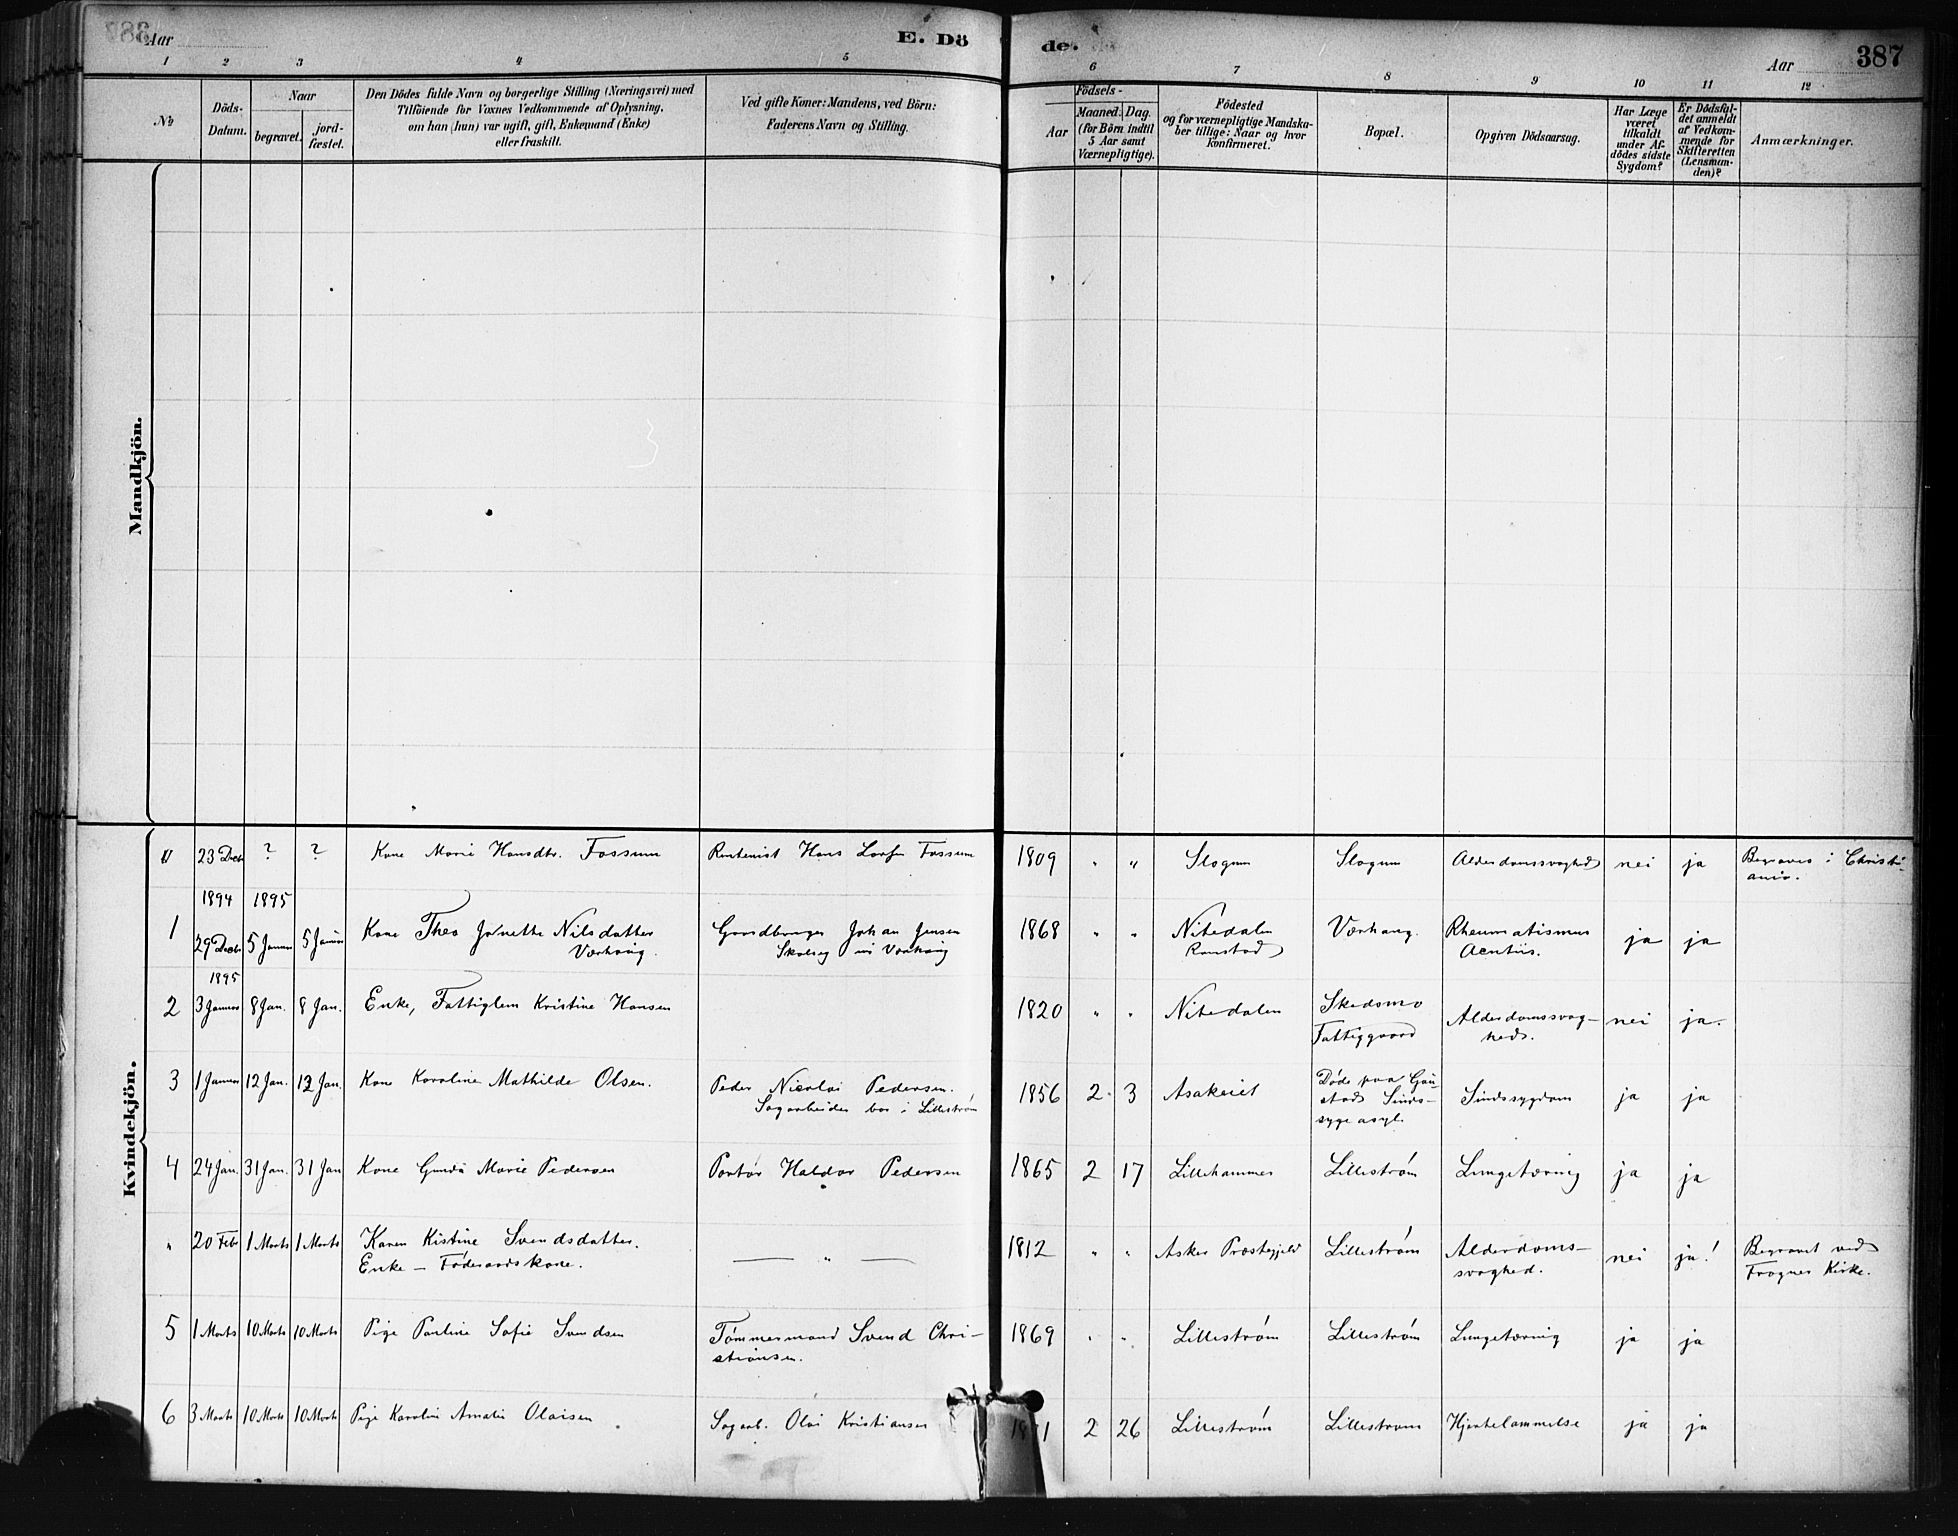 Aar
E. Dö
de.
Aar
387
1
2
3
4
5
6
7
8
9
10
11
12
No
Döds-
Datum.
Naar
begravet.
jord-
fæstet.
Den Dödes fulde Navn og borgerlige Stilling (Næringsvei) med
Tilföiende for Voxnes Vedkommende af Oplysning,
om han (hun) var ugift, gift, Enkemand (Enke)
eller fraskilt.
Ved gifte Koner: Mandens, ved Börn:
Faderens Navn og Stilling.
Födsels-
Aar
Maaned.
Dag.
(for Börn indtil
5 Aar samt
Værnepligtige).
Födested
og for værnepligtige Mandska-
ber tillige: Naar og hvor
konfirmeret.
Bopæl.
Opgiven Dödsaarsag.
Har Læge
været
tilkaldt
under Af-
dödes sidste
Sygdom?
Er Dödsfal-
det anmeldt
af Vedkom-
mende for
Skifteretten
(Lensman-
den)?
Anmærkninger.
Mandkjön.
Kvindekjön.
0 23 Decb ? ? Kone Marie Hansdtr. Fossum Hans Fossum 1809 " " Slogum Slogum Alderdomssvaghed nei ja Begraves i Christi-
ania.
1894 1895
1 29 Decb 5 Januar 5 Januar Kone Thea Nilsdatter Gaardbruger Johan Jensen 1868 " " Nitedalen Værhaug. Rheumatismus ja ja
Værhaug. Værhaug Acutiis.
1895
2 3 Januar 8 Jan. 8 Jan. Enke, Fattiglem Kristine Hansen 1820 " " Nitedalen Skedsmo Alderdomssvag- nei ja.
Fattiggaard heds.
3 1 Januar 12 Jan. 12 Jan. Kone Karoline Mathilde Olsen. Peder Nicolai Pedersen. 1856 2 3 Asakeiet Døde paa Gau- Sindssygdom ja ja
Sagarbeider bor i Lillestrøm stads Sinds-
syge asyl.
4 24 Jan. 31 Jan. 31 Jan Kone Gunda Marie Pedersen Portør Haldor Pedersen 1865 2 17 Lillehammer Lillestrøm Lungetæring ja ja
" 20 Febr 1 Marts 1 Marts Karen Kistine Svendsdatter. — " — 1812 " " Asker Præstegjeld Lillestrøm Alderdoms- nei ja! Begravet ved
Enke — Føderaadskone. svaghed. Frogner Kirke.
5 1 Marts 10 Marts 10 Marts Pige Pauline Sofie Svendsen Tømmermand Svend Chri- 1869 " " Lillestrøm Lillestrøm Lungetæring ja ja
stiansen.
6 3 Marts 10 Marts 10 Marts Pige Karoline Amalie Olaisen Sagarb. Olai Kristiansen 2 26 Lillestrøm Lillestrøm Hjertelammelse ja ja